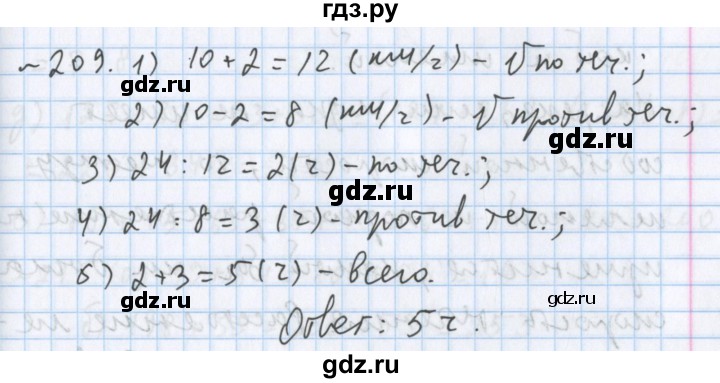 гдз.ру
№209. 1) 10+2=12 (км/ч) – V по теч.;
2) 10-2=8 (км/ч) – V против теч.;
gdz.ru
gdz.ru
3) 24:12=2(ч) – по теч.;
gdz.ru
4) 24:8=3 (ч) – против теч.;
5) 2+3=5(ч) – всего.
gdz.ru
gdz.ru
Ответ: 5 ч.
gdz.ru
gdz.ru